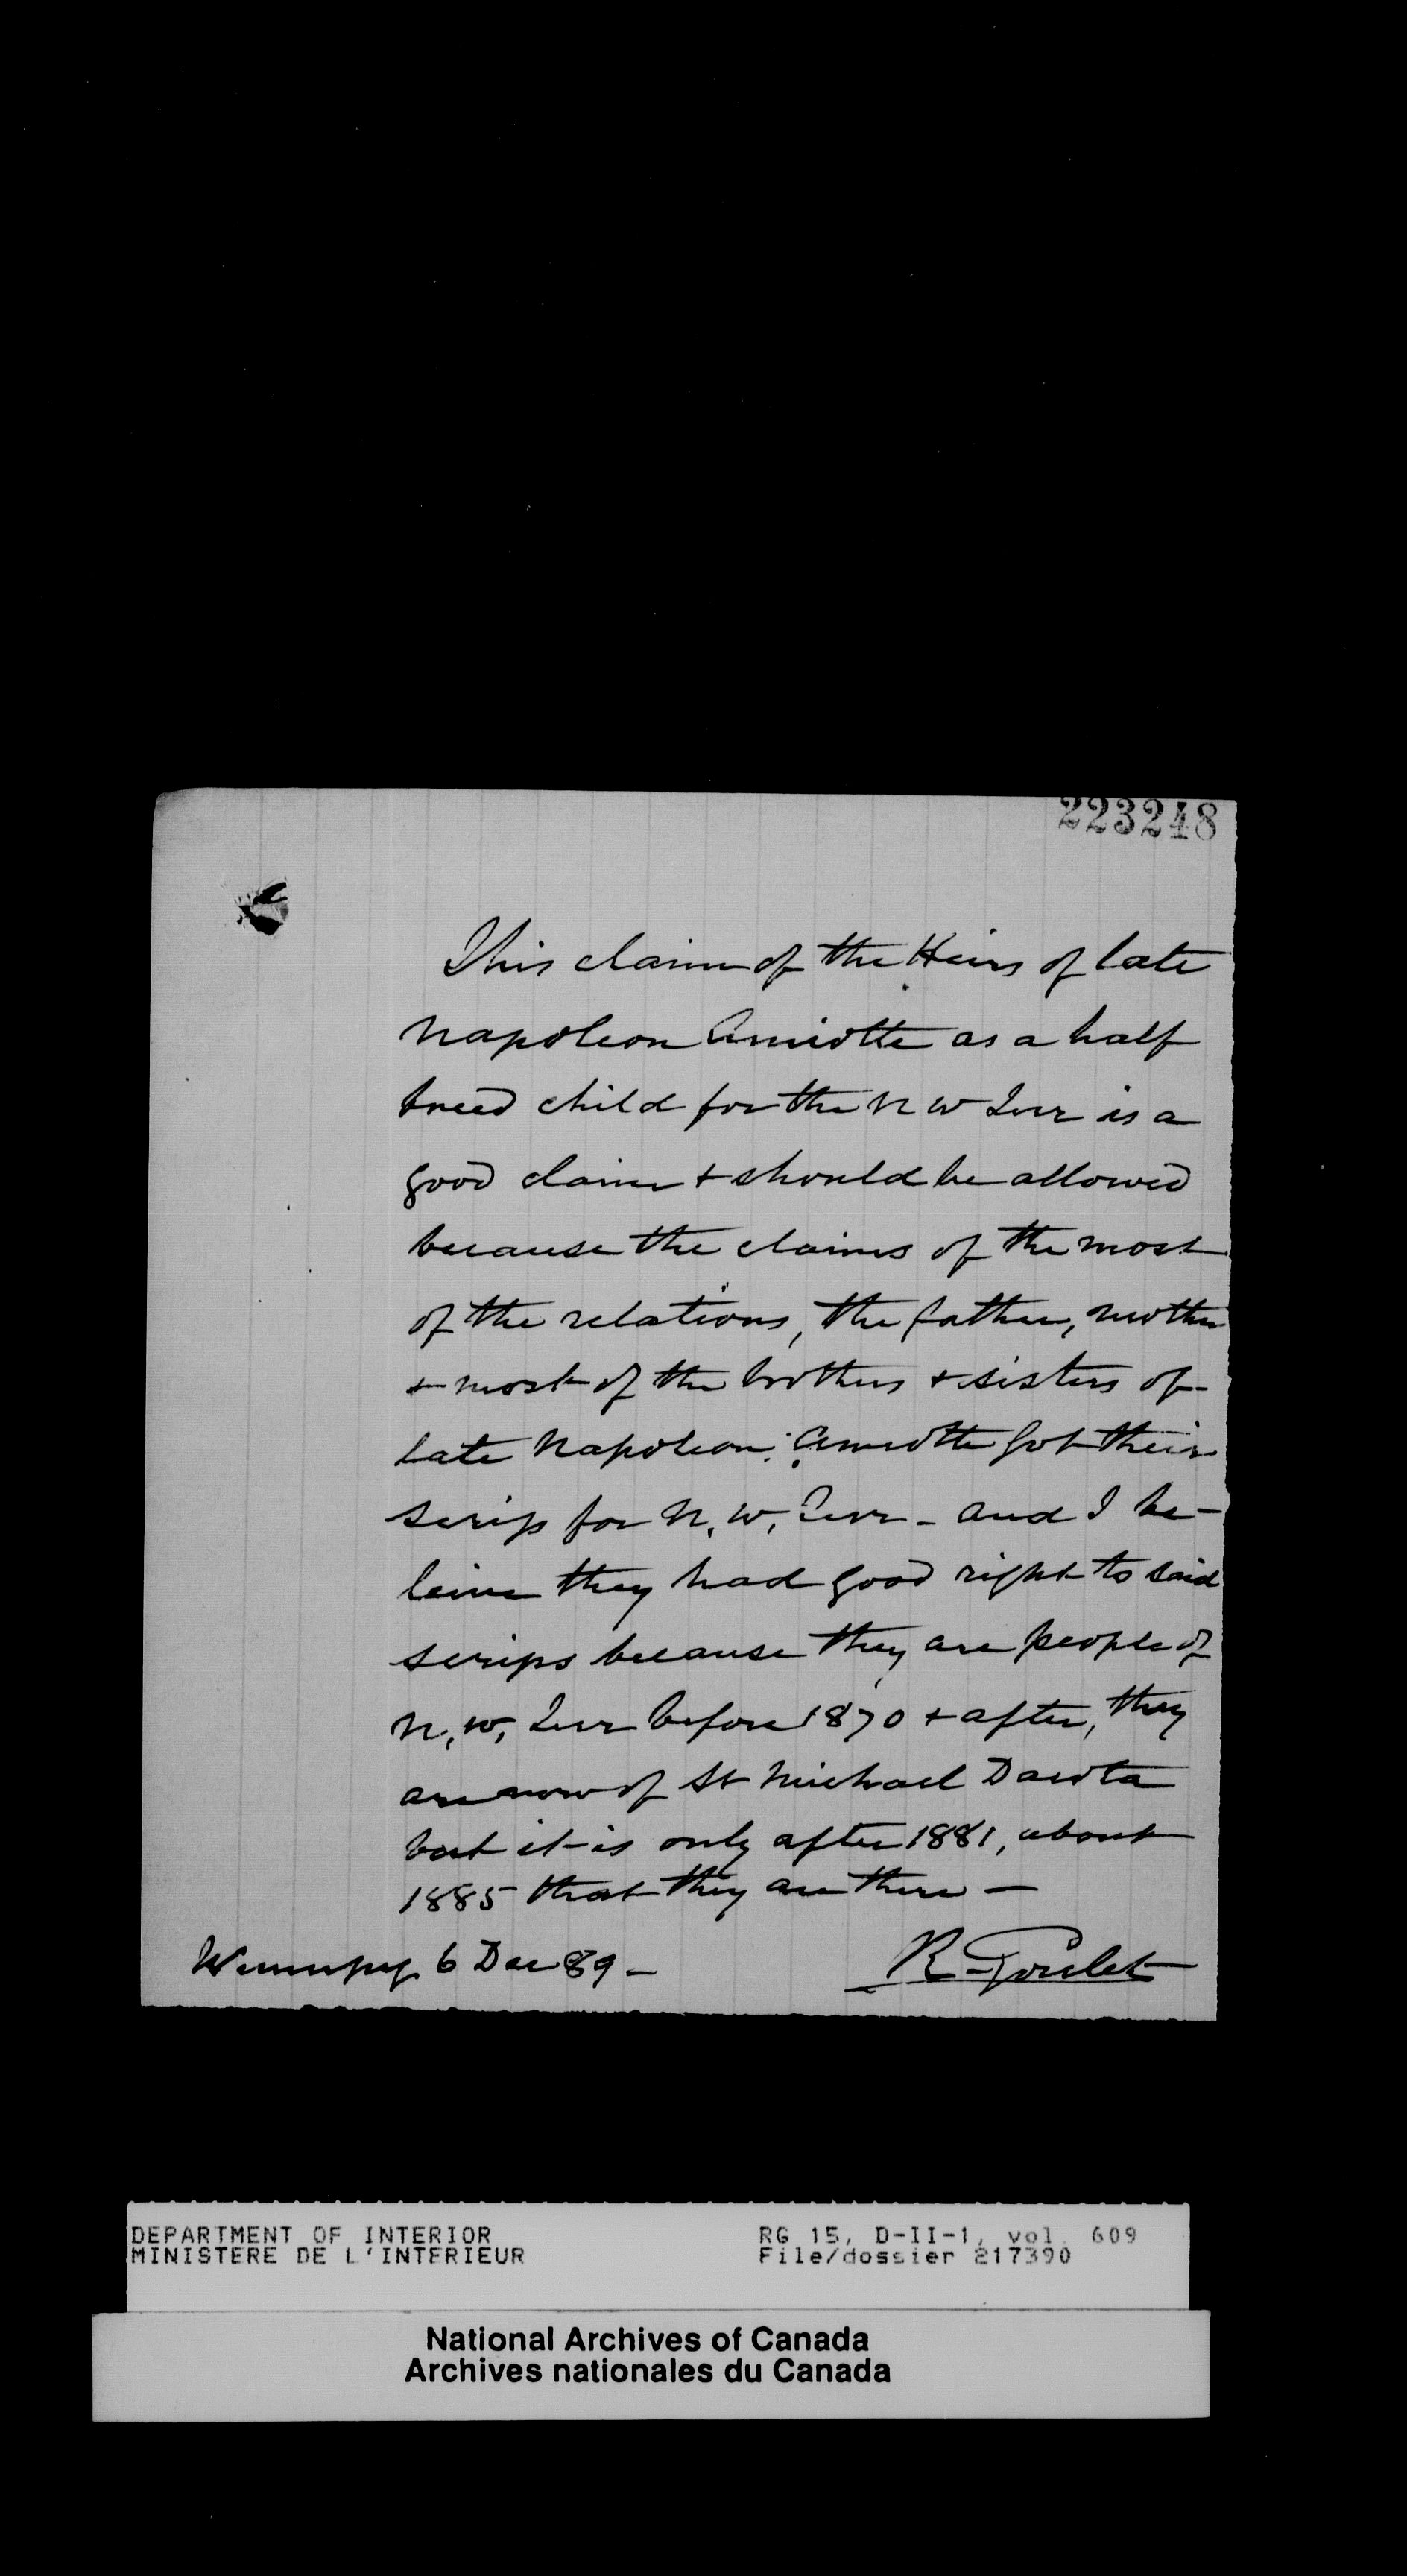 223248
This claim of the Heirs of late
Napoleon Amiotte as a half
breed child for the N W Terr is a
good claim + should be allowed
because the claims of the most
of the relations, the father, mother
+ most of the brothers + sisters of
late Napoleon Amiotte got their
scrip for N. W. Terr - and I be-
leive they had good right to said
scrips because they are people of
N. W. Terr before 1870 + after, they
are now of St Michael Dacota
but it is only after 1881, about
1885 that they are there —
Winnipeg 6 Dec 89 - R. Goulet
DEPARTMENT OF INTERIOR RG 15, D-II-1, vol. 609
MINISTERE DE L'INTERIEUR File/dossier 217390
National Archives of Canada
Archives nationales du Canada